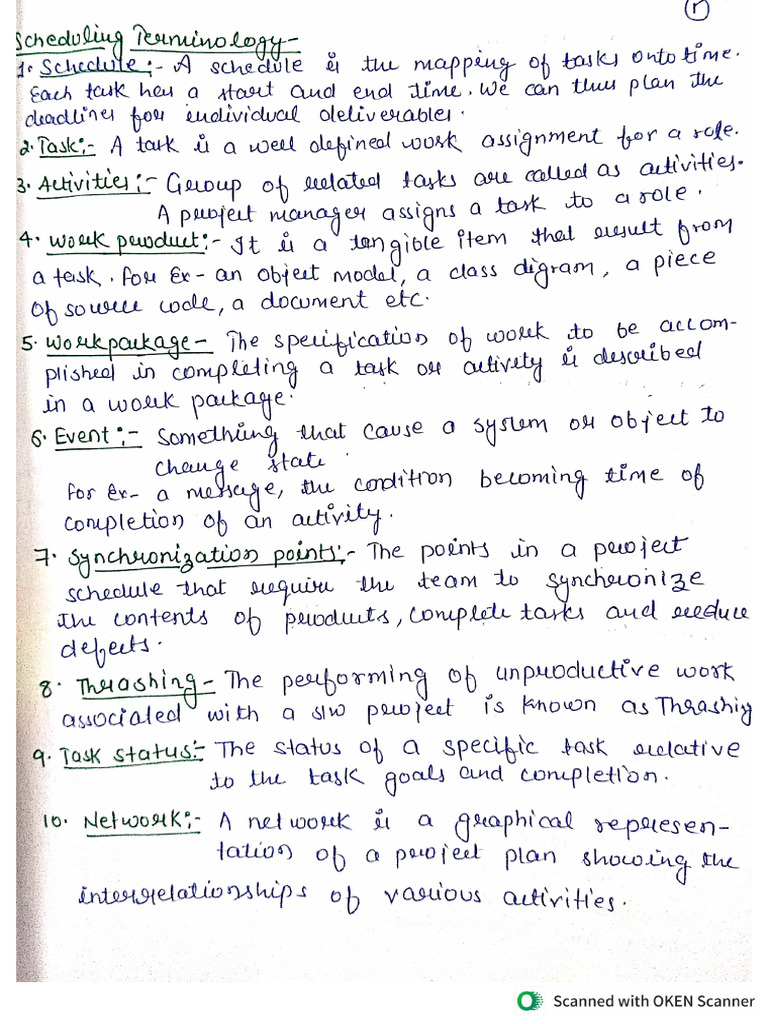 (1)
Scheduling Terminology-
1. Schedule:- A schedule is the mapping of tasks onto time.
Each task has a start and end time. We can thus plan the
deadlines for individual deliverables.
2. Task:- A task is a well defined work assignment for a role.
3. Activities:- Group of related tasks are called as activities.
A project manager assigns a task to a role.
4. Work product:- It is a tangible item that result from
a task. For Ex- an object model, a class digram, a piece
of source code, a document etc.
5. Workpackage- The specification of work to be accom-
plished in completing a task or activity is described
in a work package.
6. Event:- Something that cause a system or object to
change state.
For Ex- a message, the condition becoming time of
completion of an activity.
7. Synchronization points:- The points in a project
schedule that require the team to synchronize
the contents of products, complete tasks and reduce
defects.
8. Thrashing- The performing of unproductive work
associated with a s/w project is known as Thrashig
9. Task status:- The status of a specific task relative
to the task goals and completion.
10. Network:- A network is a graphical represen-
tation of a project plan showing the
interrelationships of various activities.
Scanned with OKEN Scanner